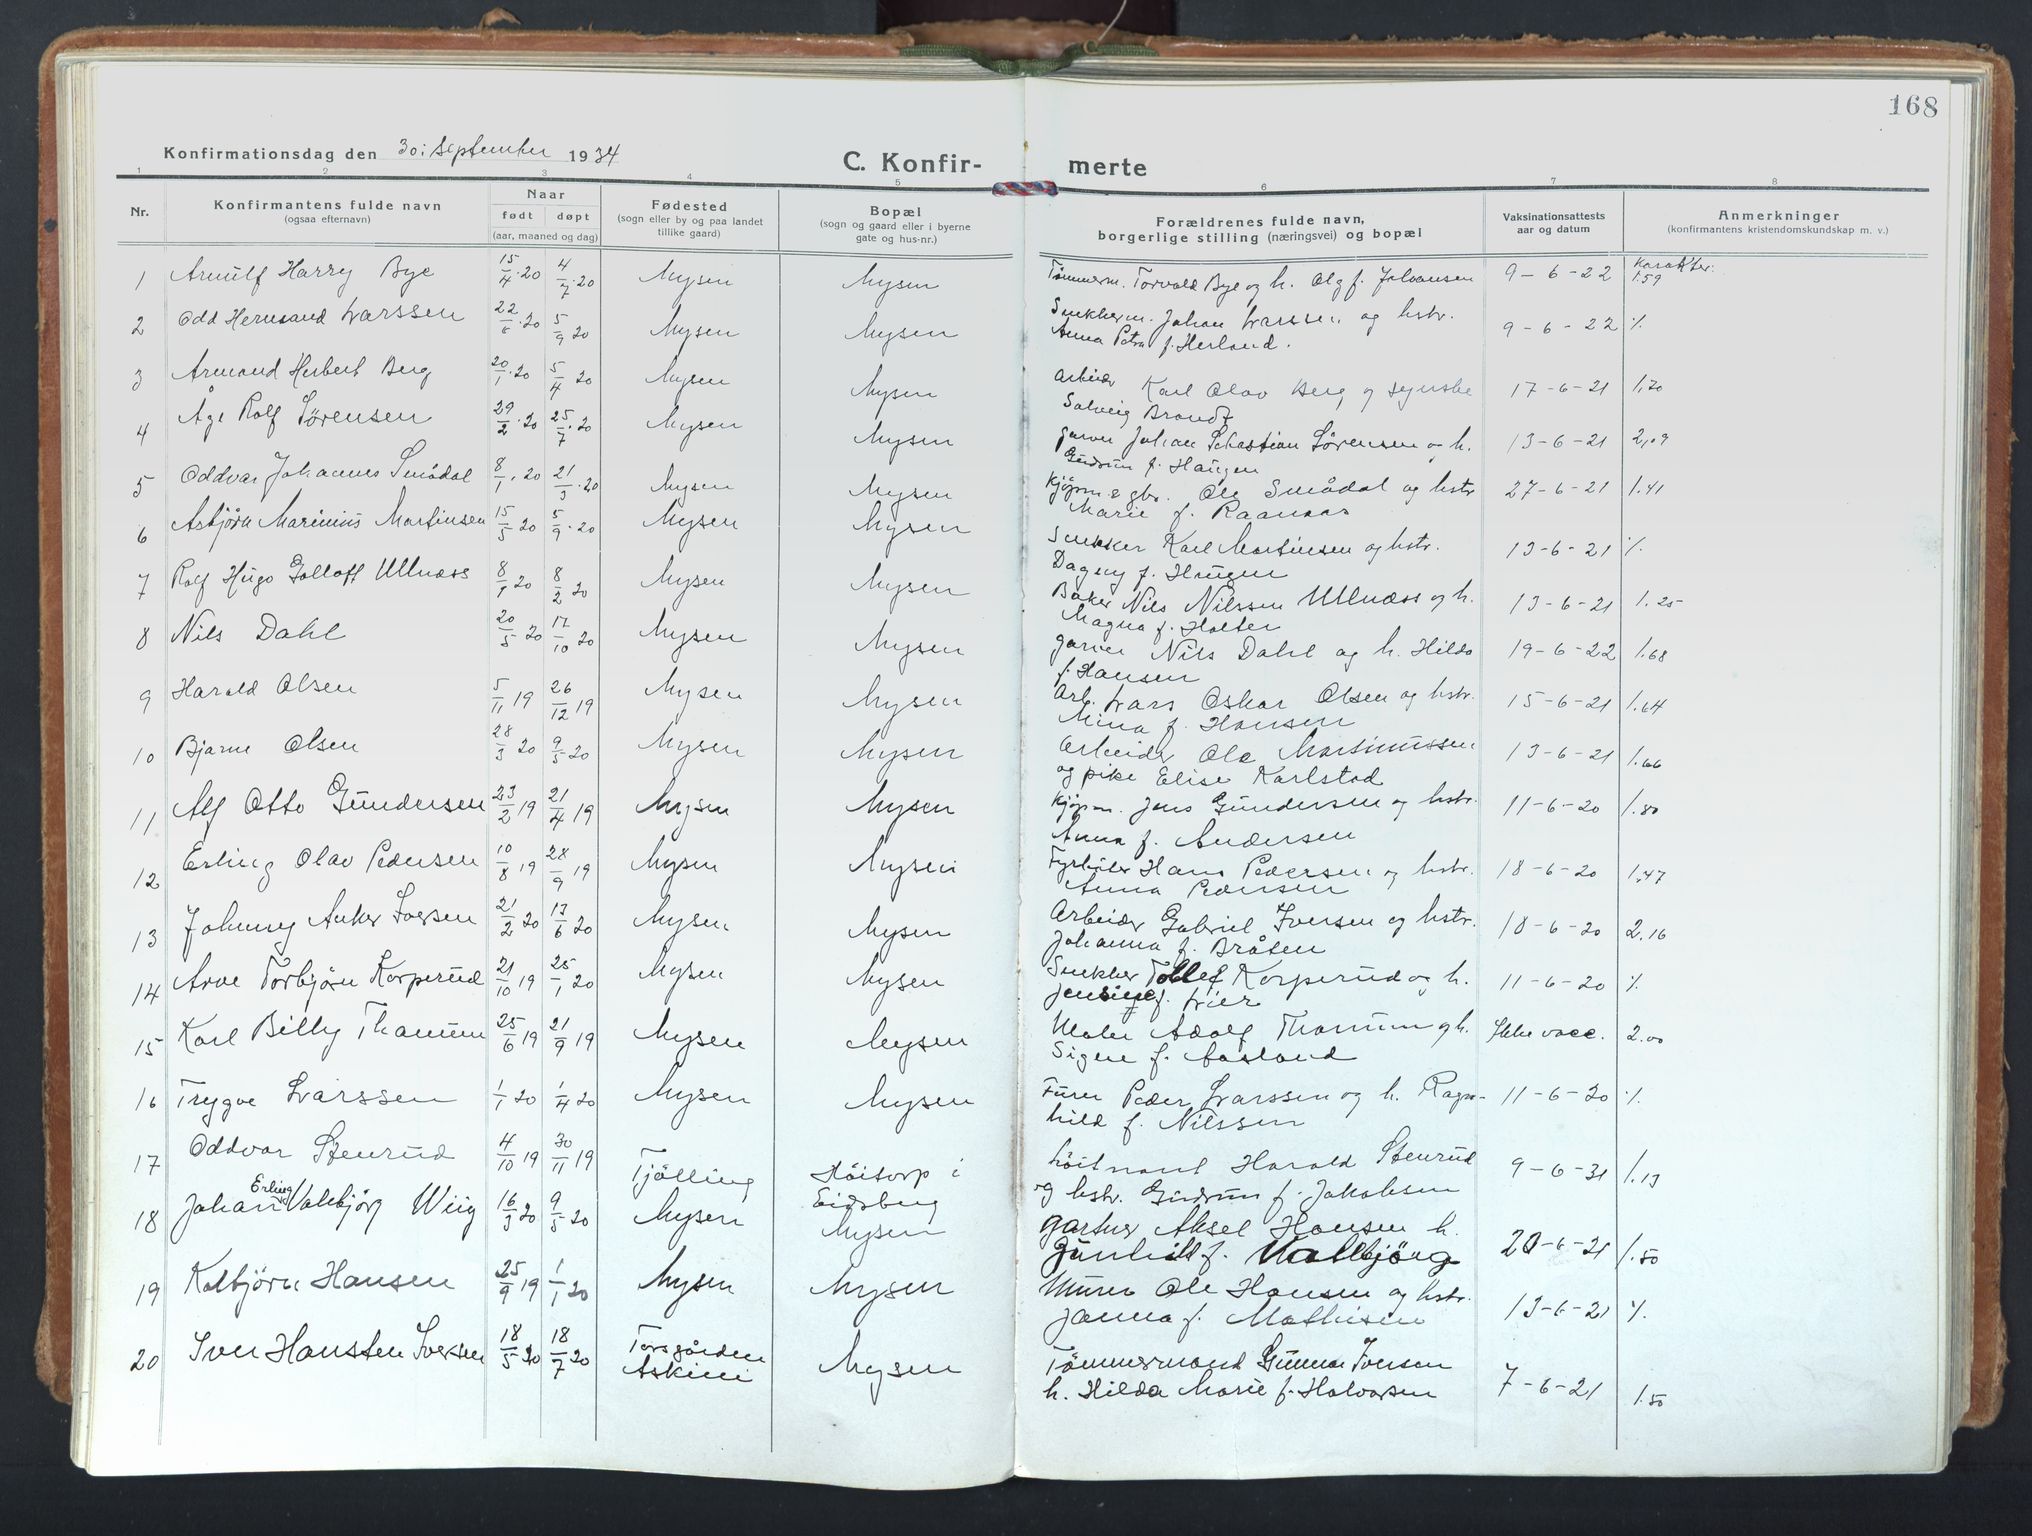 168
Konfirmationsdag den 30: September 1934
C. Konfir- merte
1 2 3 4 5 6 7 8
Nr.
Konfirmantens fulde navn
(ogsaa efternavn)
Naar
født døpt
(aar, maaned og dag)
Fødested
(sogn eller by og paa landet
tillike gaard)
Bopæl
(sogn og gaard eller i byerne
gate og hus-nr.)
Forældrenes fulde navn,
borgerlige stilling (næringsvei) og bopæl
Vaksinationsattests
aar og datum
Anmerkninger
(konfirmantens kristendomskundskap m. v.)
1 Arnulf Harry Bye 15/4 · 20 4/7 · 20 Mysen Mysen Tømmerm. Torvald Bye og h. Olg f. Johansen 9-6-22 Karakter: 1.59
2 Odd Hermand Larssen 22/6 · 20 5/9 20 Mysen Mysen Snekkerm. Johan Larssen og hstr. 9-6-22 %
Anna Petra f. Herland.
3 Armand Herbert Berg 20/1 · 20 5/4 20 Mysen Mysen Arbeider Karl Olav Berg og 17-6-21 1,70
Solveig Brandt
4 Åge Rolf Sørensen 29/2 · 20 25/7 · 20 Mysen Mysen Garver Johan Sebastian Sørensen og h. 13-6-21 2,09
Gudrun f. Haugen
5 Oddvar Johannes Smådal 8/1 · 20 21/3 · 20 Mysen Mysen Kjøpm. & gbr. Ole Smådal og hstr 27-6-21 1.41
Marie f. Raanaas
6 Asbjørn Marinius Martinsen 15/5 20 5/9 · 20 Mysen Mysen Snekker Karl Martinsen og hstr. 13-6-21 %
Dagny f. Haugen
7 Rolf Hugo Gottloff Ullnæss 8/1 20 8/2 20 Mysen Mysen Baker Nils Nilssen Ullnæss og h. 13-6-21 1.25
Magna f. Holter
8 Nils Dahl 20/5 20 17/10 20 Mysen Mysen Garver Nils Dahl og h. Hilda 19-6-22 1.68
f. Hansen
9 Harald Olsen 5/11 19 26/12 19 Mysen Mysen Arb. Lars Oskar Olsen og hstr. 15-6-21 1.64
Mina f. Hansen
10 Bjarne Olsen 28/3 20 9/5 20 Mysen Mysen Arbeider Ole Martinussen 13-6-21 1.66
og pike Elise Karlstad
11 Alf Otto Gundersen 23/2 19 21/4 19 Mysen Mysen Kjøpm. Jens Gundersen og hstr. 11-6-20 1.80
Anna f. Andersen
12 Erling Olav Pedersen 10/8 19 28/9 19 Mysen Mysen Fyrbøter Hans Pedersen og hstr. 18-6-20 1,47
Anna Pedersen
13 Johnny Anker Iversen 21/2 20 13/6 20 Mysen Mysen Arbeider Gabriel Iversen og hstr. 18-6-20 2,16
Johanna f. Bråten
14 Arve Torbjørn Korperud 21/10 19 25/1 20 Mysen Mysen Snekker Tollef Korperud og h. 11-6-20 %
Jensine f. Lier
15 Karl Billy Thanum 25/6 19 21/9 19 Mysen Mysen Maler Adolf Thanum og h. Ikke vacc. 2.00
Signe f. Aasland
16 Trygve Larssen 1/1 20 1/4 20 Mysen Mysen Furer Peder Larssen og h. Ragn- 11-6-20 %
hild f. Nilssen
17 Oddvar Stenrud 4/10 19 30/11 19 Tjølling Høitorp i Eidsberg Løitnant Harald Stenrud 9-6-31 1.13
og hstr. Gudrun f. Jakobsen
18 Johan Erling Valbjørg Wiig 16/3 20 9/5 20 Mysen Mysen Gartner Aksel Hansen h. 20-6-21 1.50
Gunhild f. Valbjörg
19 Kolbjørn Hansen 25/9 19 1/1 20 Mysen Mysen Murer Ole Hansen og hstr. 13-6-21 %
Janna f. Mathisen
20 Sven Hansten Iversen 18/5 20 18/7 20 Torsgården Askim Mysen Tømmermand Gunnar Iversen 7-6-21 1.50
h. Hilda Marie f. Halvorsen